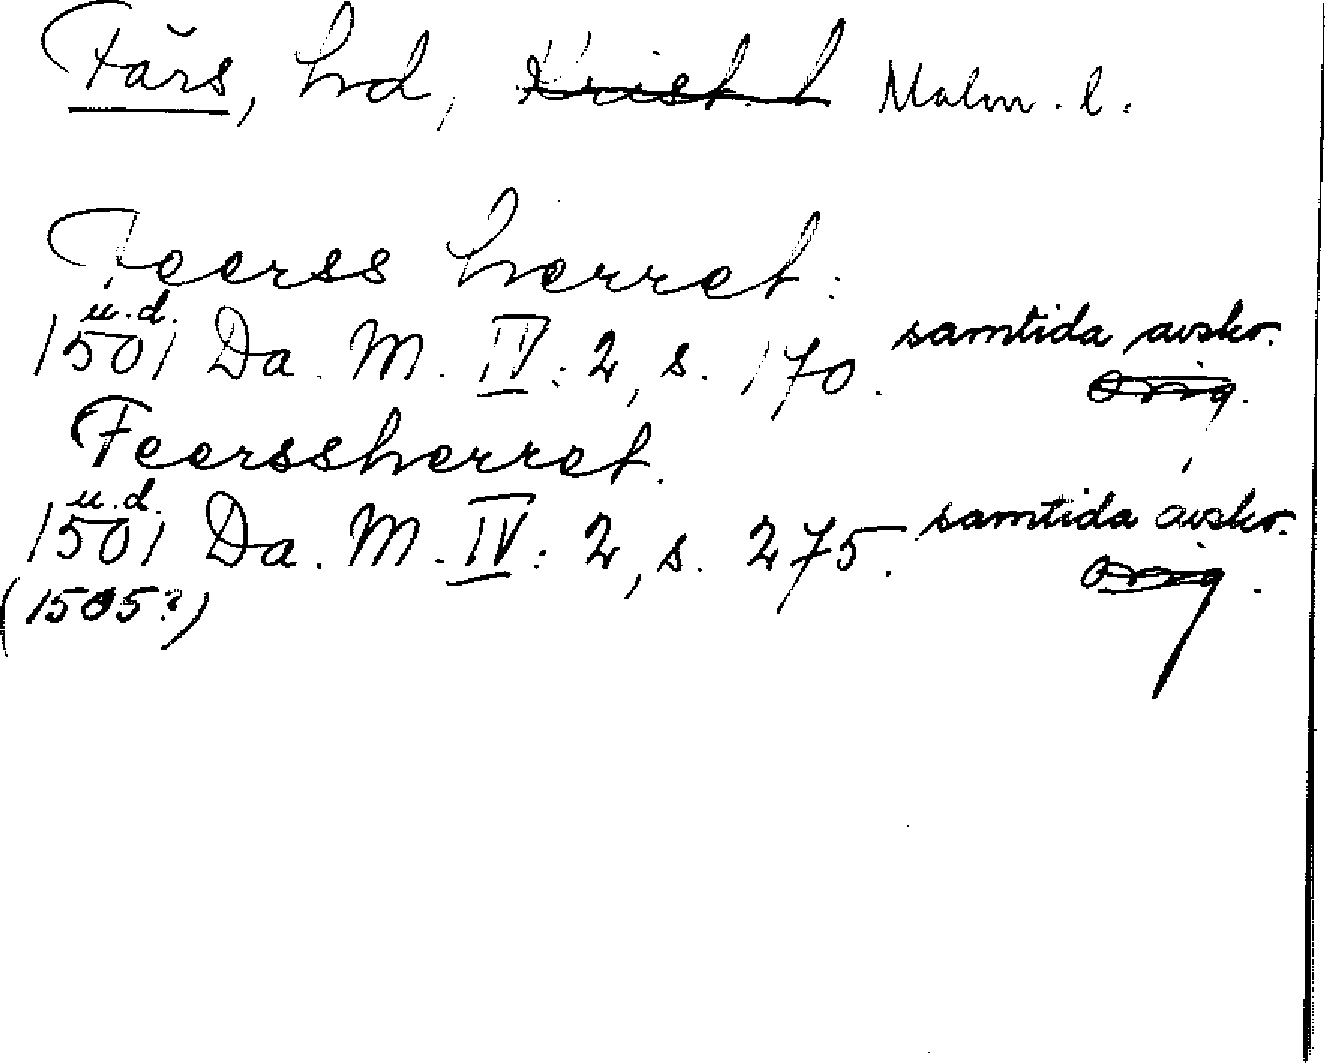 Färs, hd, Krist. l Malm. l.
Feerss herret:
u.d.
1501 Da. M. IV: 2, s. 170. samtida avskr.
Orig.
Feerssherret.
u.d.
1501 Da. M. IV: 2, s. 275. samtida avskr.
Orig.
(1505?)